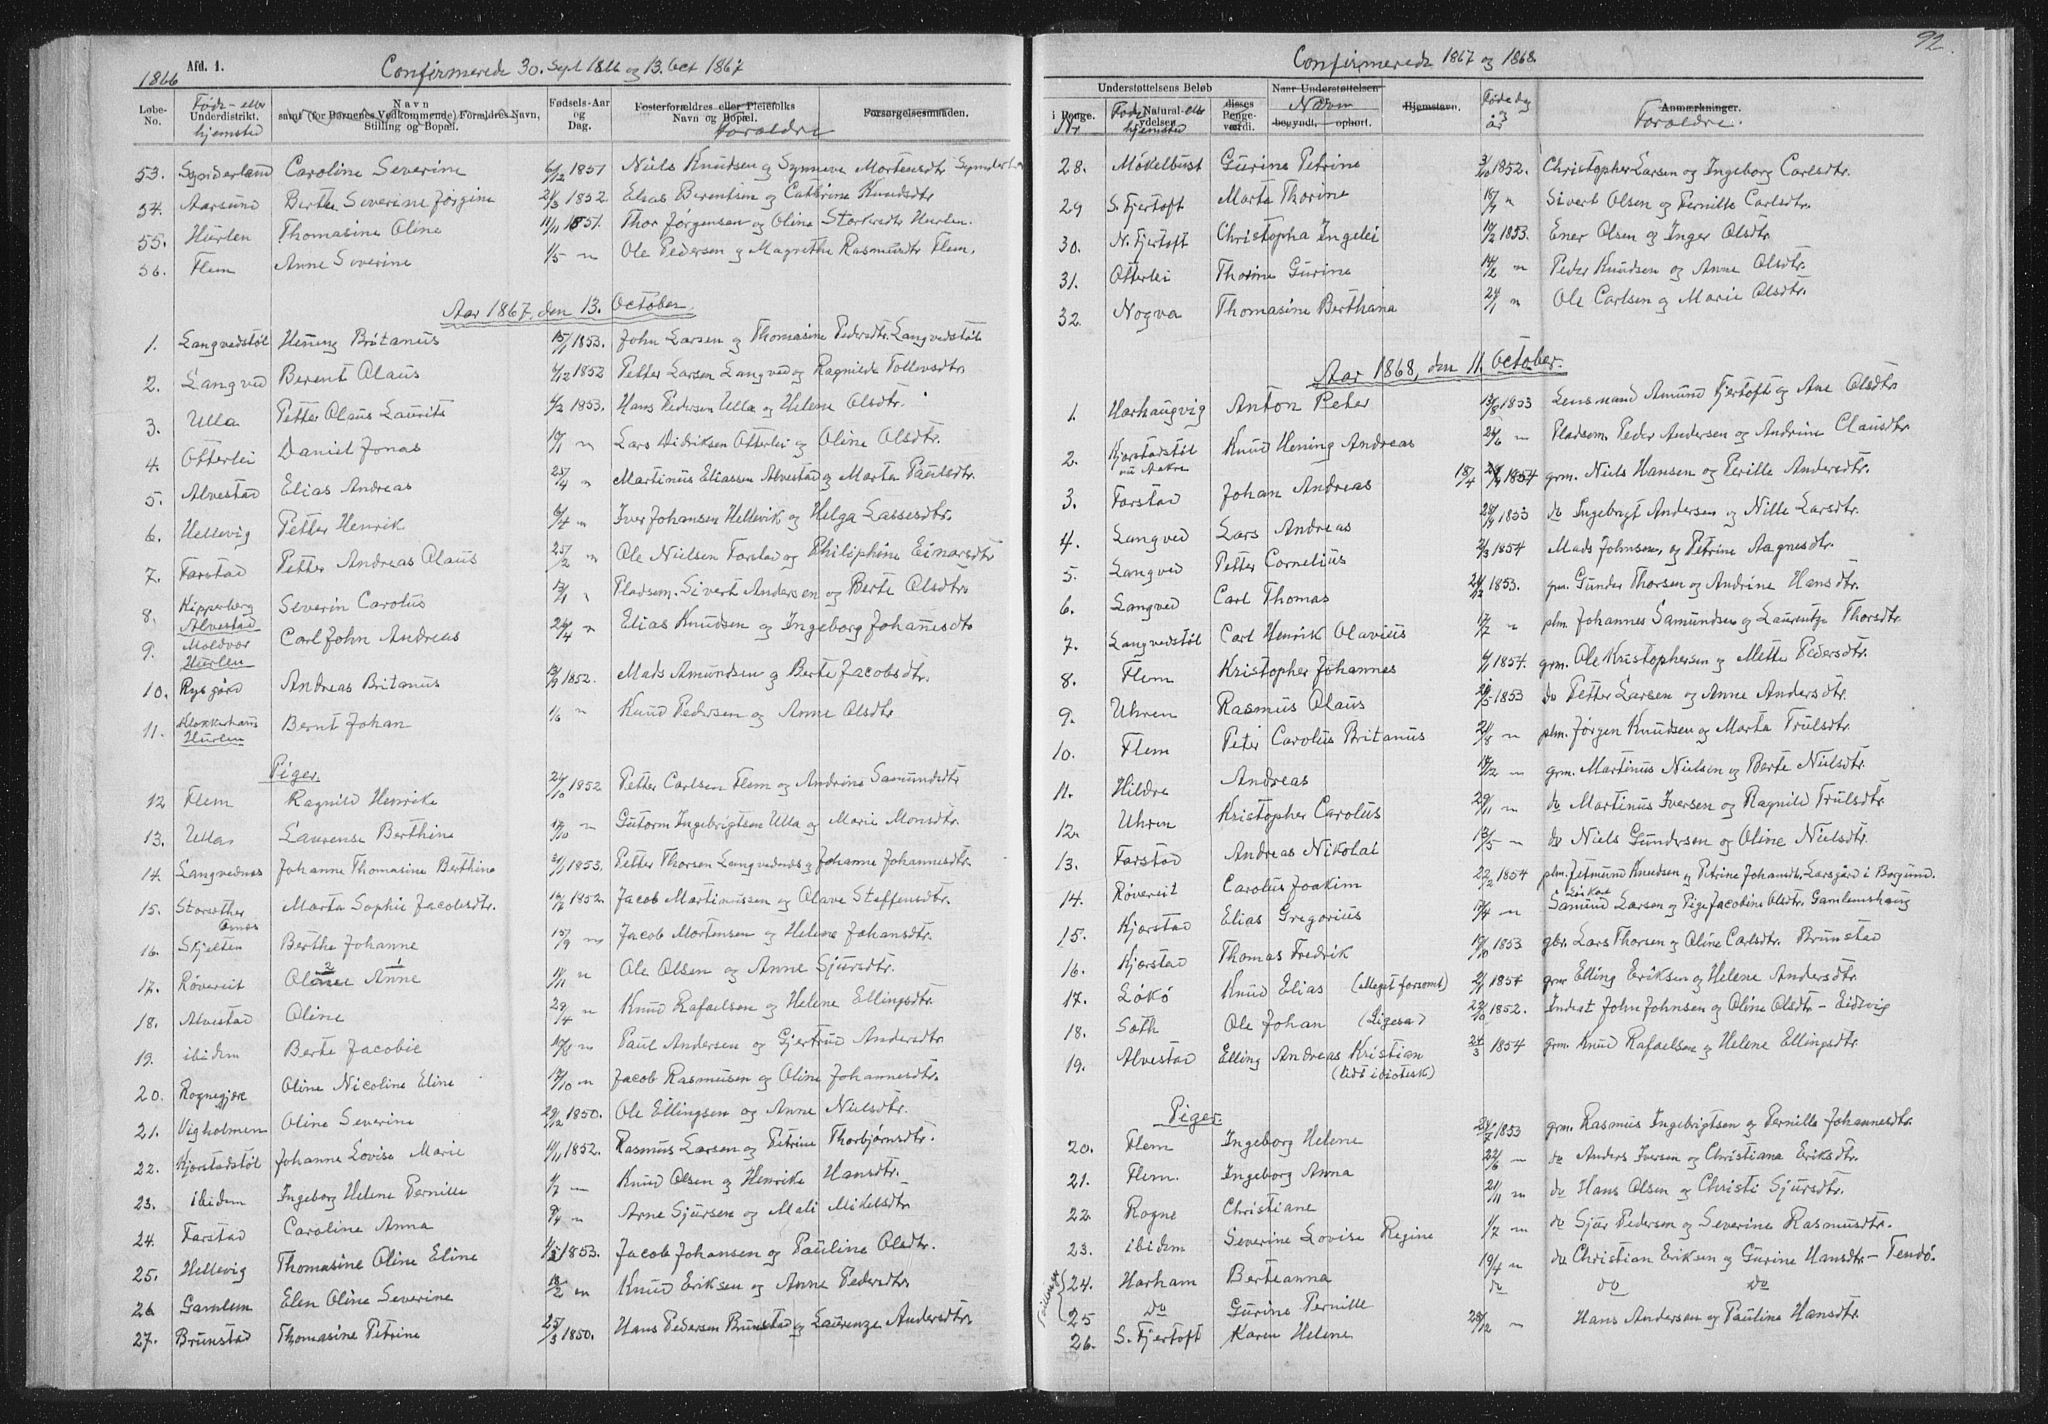 Afd. 1.
1866
Confirmerede 30. Sept 1866 og 13. Oct 1867
Løbe-No. Føde- eller Underdistrikt. hjemsted Navn samt (for Børnenes Vedkommende) Forældres Navn, Stilling og Bopæl. Fødsels-Aar og Dag. Fosterforældres eller Pleiefolks Navn og Bopæl. Forældre Forsørgelsesmaaden.
53. Synderland Caroline Severine 6/2 1851 Niels Knudsen og Synneve Mortensdtr Synderland
54. Aarsund Berthe Severine Jørgine 21/3 1852 Elias Berentsen og Cathrine Knudsdtr
55. Hurlen Thomasine Oline 11/11 1851. Thor Jørgensen og Oline Storkersdtr Hurlen.
56. Flem Anne Severine 1/5 " Ole Pedersen og Magrethe Rasmusdtr Flem.
Aar 1867, den 13. October.
1. Langvedstøl Hening Britanus 15/1 1853. John Larsen og Thomasine Pedersdtr. Langvedstøl
2. Langved Berent Olaus 6/12 1852 Petter Larsen Langved og Ragnilde Tollevsdtr.
3. Ulla Petter Olaus Laurits 6/2 1853. Hans Pedersen Ulla og Helene Olsdtr.
4. Otterlei Daniel Jonas 19/1 " Lars Didriksen Otterlei og Oline Olsdtr.
5. Alvestad Elias Andreas 25/4 " Martinus Eliassen Alvestad og Marten Paulsdtr.
6. Hellevig Petter Henrik 6/4 " Iver Johansen Hellevik og Helga Lassesdtr.
7. Farstad Petter Andreas Olaus 25/2 " Ole Nielsen Farstad og Philiphine Einarsdtr
8. Kipperberg Alvestad Severin Carolus 13/1 " Pladsem. Sivert Andersen og Berte Olsdtr.
9. Moldvær Hurlen Carl John Andreas 26/4 " Elias Knudsen og Ingeborg Johannesdtr
10. Rysgård Andreas Britanus 13/9 1852. Mads Amundsen og Berte Jacobsdtr.
11. Klokkerhaus Hurlen Bernt Johan 1/6 " Knud Pedersen og Anne Olsdtr
Piger.
12 Flem Ragnild Henrike 24/10 1852 Petter Carlsen Flem og Andrine Samundsdtr
13. Ulla Laurense Berthine 17/10 " Gutorm Ingebrigtsen Ulla og Marie Monsdtr.
14. Langvednes Johanne Thomasine Berthine 21/1 1853. Petter Thorsen Langvednes og Johanne Johannesdtr.
15. Storsether Marta Sophie Jacobsdtr. 14/7 1852. Jacob Martinussen og Olave Steffensdtr.
16. Skjelten Berthe Johanne 15/9 " Jacob Mortensen og Helene Johansdtr.
17. Røvereit Oline 2 Anne 1 11/11 " Ole Olsen og Anne Sjursdtr.
18. Alvestad Oline 29/4 " Knud Rafaelsen og Helene Ellingsdtr.
19. ibidem Berte Jacobie 17/8 " Paul Andersen og Gjertrud Andersdtr.
20. Rognegjøre Oline Nicoline Eline 17/10 " Jacob Rasmusen og Oline Johannesdtr.
21. Vigholmen Oline Severine 29/12 1850. Ole Ellingsen og Anne Nielsdtr.
22. Kjørstadstøl Johanne Lovise Marie 11/11 1852. Rasmus Larsen og Petrine Thorbjørnsdtr.
23. ibidem Ingeborg Helene Pernille 1/7 " Knud Olsen og Henrike Hansdtr.
24. Farstad Caroline Anna 9/4 " Arne Sjursen og Mali Mikelsdtr
25. Hellevig Thomasine Oline Eline 1/2 1853. Jacob Johansen og Pauline Olsdtr.
26 Gamlem Elen Oline Severine 13/2 " Knud Eriksen og Anne Pedersdtr
27. Brunstad Thomasine Petrine 25/3 1850. Hans Pedersen Brunstad og Laurenze Andersdtr.
92.
Confirmerede 1867 og 1868.
Understøttelsens Beløb Naar Understøttelsen
i Penge. Nr Føde- eller hjemsted Natural-ydelser. disses Penge-værdi. Navn begyndt. ophørt. Hjemstavn. Fødedag og år Anmærkninger. Forældre.
28. Mökelbust Gurine Petrine 3/10 1852. Christopher Larsen og Ingeborg Carlsdtr.
29 S. Fjertoft Marte Thorine 18/9 " Sivert Olsen og Pernille Carlsdtr.
30. N. Fjertoft Christopha Ingelei 19/2 1853. Ener Olsen og Inger Olsdtr.
31. Otterlei Thorine Gurine 14/2 " Peder Knudsen og Anne Olsdtr.
32. Nogva Thomasine Berthana 24/1 " Ole Carlsen og Marie Olsdtr.
Aar 1868, den 11. October.
1. Harhaugvig Anton Peter 13/8 1853 Lensmand Amund Fjertoft og Ane Olsdtr
2. Kjørstadstøl nu Aakre Knud Hening Andreas 26/6 " Pladsem. Peder Andersen og Andrine Clausdtr
3. Farstad Johan Andreas 18/4 1854 grm. Niels Hansen og Perille Andersdtr.
4. Langved Lars Andreas 28/9 1853 do Ingebrigt Andersen og Nille Larsdtr.
5. Langved Petter Cornelius 2/3 1854 Mads Johnsen og Petrine Aagnesdtr.
6. Langved Carl Thomas 24/12 1853. grm. Gunder Thorsen og Andrine Hansdtr.
7. Langvedstøl Carl Henrik Olavius 17/7 " plm. Johannes Samundsen og Laurentze Thorsdtr.
8. Flem Kristopher Johannes 6/1 1854. grm. Ole Kristophersen og Mette Pedersdtr.
9. Uhren Rasmus Olaus 21/5 1853 do Petter Larsen og Anne Andersdtr.
10. Flem Peter Carolus Britanus 21/8 " plm. Jørgen Knudsen og Marta Trulsdtr.
11. Hildre Andreas 18/12 " grm. Martinus Nielsen og Berte Nielsdtr.
12. Uhren Kristopher Carolus 29/11 " do Martinus Iversen og Ragnild Trulsdtr.
13. Farstad Andreas Nikolai 13/5 " do Niels Gundersen og Oline Nielsdtr.
14. Røvereit Carolus Joakim 22/2 1854 plm. Jetmund Knudsen og Petrine Johansdtr. Larsgård i Borgund.
15. Kjørstad Elias Gregorius 17/4 " Samund Larsen og Pige Jacobine Olsdtr. Gamlemshaug
16. Kjørstad Thomas Fredrik 17/10 1853 gbr. Lars Thorsen og Oline Carlsdtr. Brunstad
17. Lökö Knud Elias (Meget forsømt) 21/1 1854 grm Elling Eriksen og Helene Andersdtr
18. Søth Ole Johan (Ligesaa) 22/10 1852. Inderst John Johnsen og Oline Olsdtr - Eidvig
19. Alvestad Elling Andreas Kristian (lidt idiotisk) 24/3 1854 grm. Knud Rafaelsen og Helene Ellingsdtr.
Piger.
20. Flem Ingeborg Helene 24/7 1853 grm. Rasmus Ingebrigtsen og Pernille Johannesdtr.
21. Flem. Ingeborg Anna 22/6 " do Anders Iversen og Christiana Eriksdtr.
22 Rogne Christiane 21/11 " do Hans Olsen og Christi Sjursdtr.
23. ibidem Severine Lovise Regine 1/7 " do Sjur Pedersen og Severine Rasmusdtr.
24. Harham Berteanna 19/4 " do Christian Eriksen og Gurine Hansdtr - Tendö.
25 do Gurine Pernille do do do
26. S. Fjertoft Karen Helene 28/12 " Hans Andersen og Pauline Hansdtr.